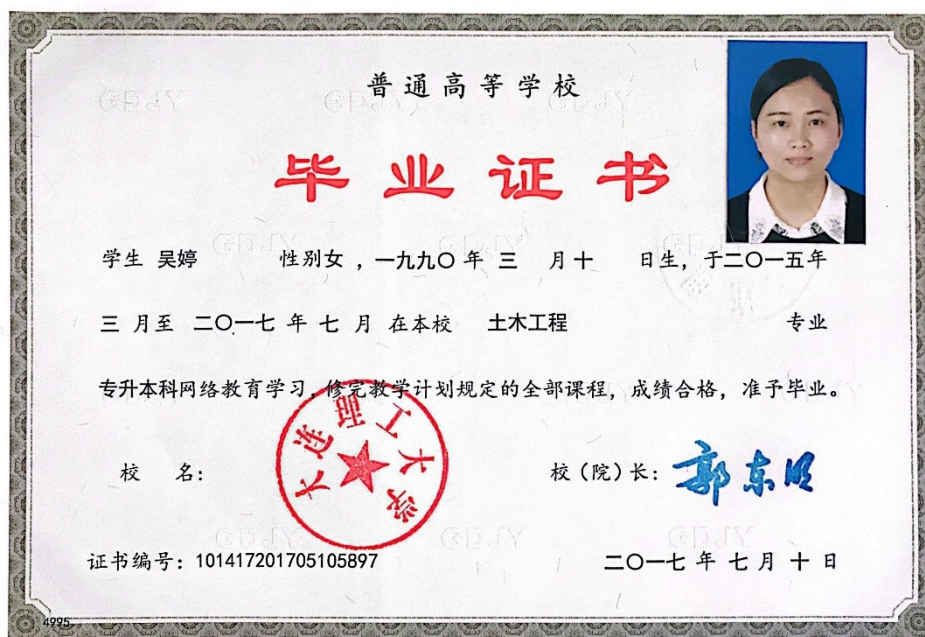 普通高等学校
毕业证书
学生 吴婷 性别女 ，一九九〇 年 三 月十 日生，于二〇一五年
三 月至 二〇一七 年 七 月 在本校 土木工程 专业
专升本科网络教育学习，修完教学计划规定的全部课程，成绩合格，准予毕业。
校 名：
大连理工大学
校（院）长：郭东明
证书编号：101417201705105897
二〇一七 年 七 月 十 日
4995